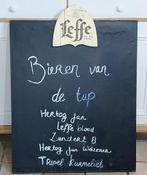 Leffe
Bieren van
de tap
Hertog Jan
Leffe blond
Zundert 8
Hertog Jan Weizener
Tripel Karmeliet